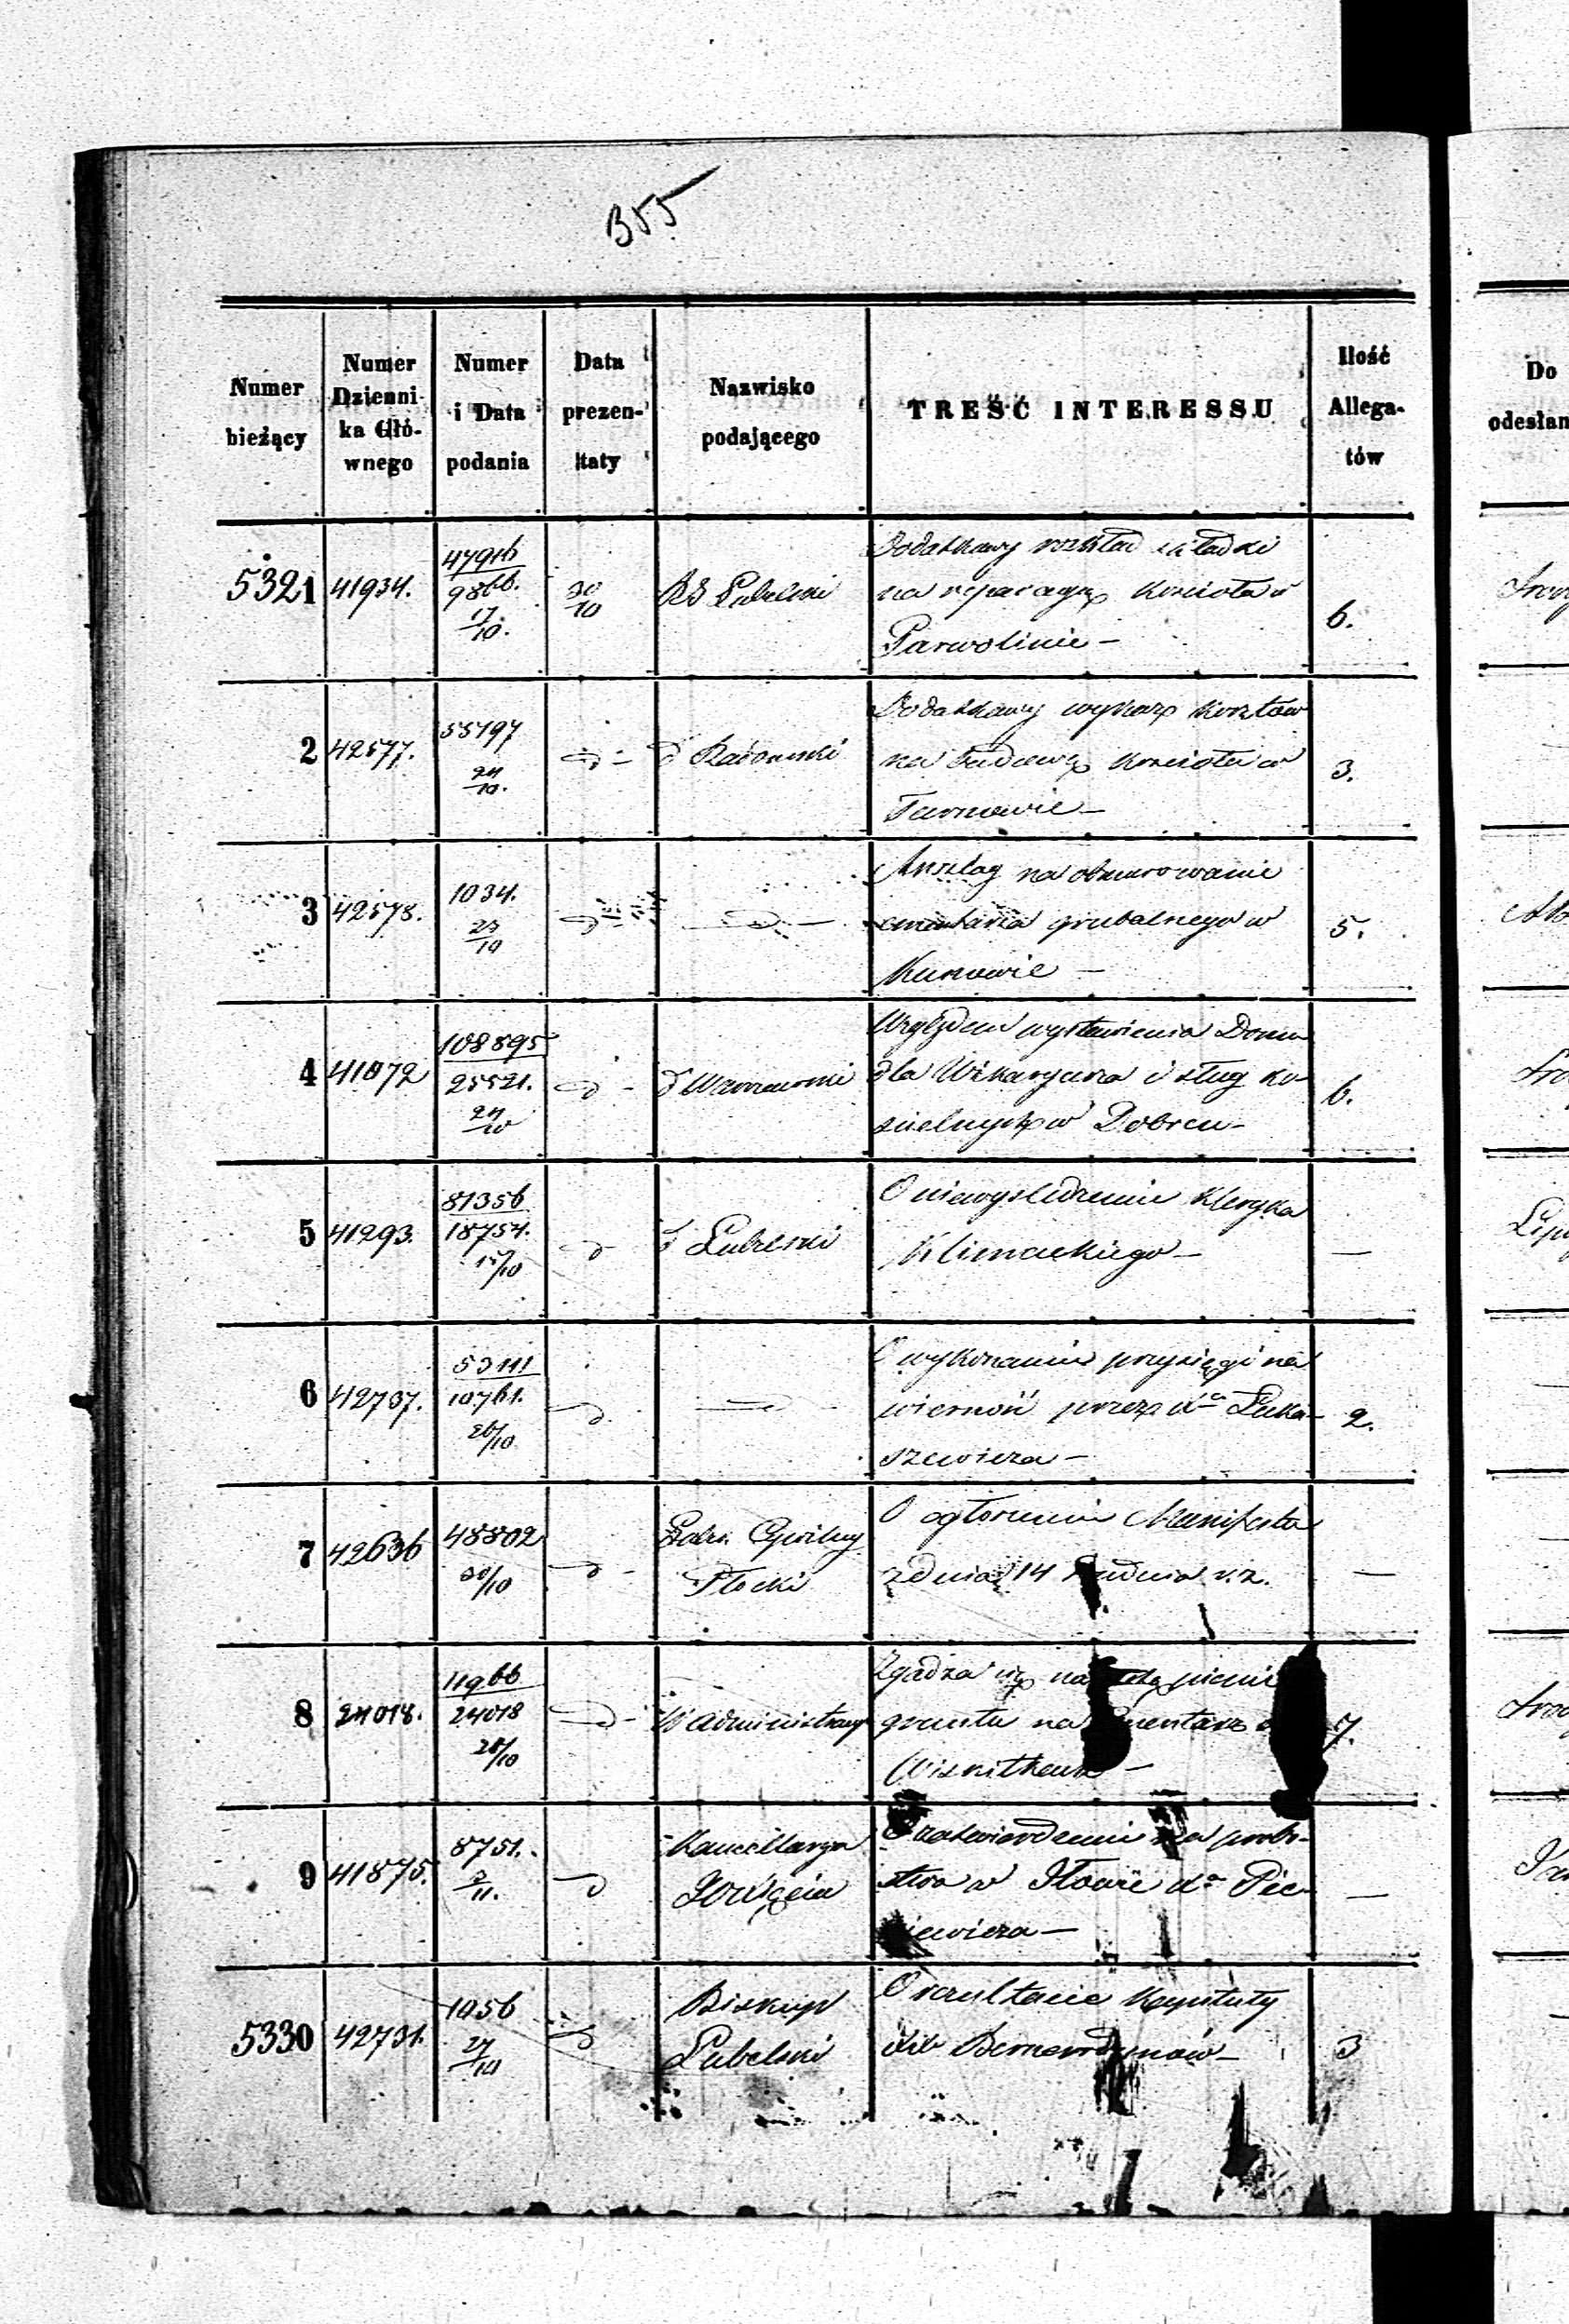 355
Numer bieżący
Numer Dzienni-ka Głó-wnego
Numer i Data podania
Data prezen-taty
Nazwisko podającego
TREŚĆ INTERESSU
Ilość Allega-tów
Do
odesłan
5321 41934. 47916 9866. 17/10. 30/10 RG Lubelski
Dodatkowy rozkład składki
na reparacyę kościoła w
Parwolinie – 6.
2 42577. 55797 24/10. d Radomski
Dodatkowy wykaz kosztów
na budowę kościoła w
Tarnowie – 3.
3 42578. 1034. 23/10
Anszlag na obmurowanie
cmentarza grzebalnego w
Kunowie – 5.
4 41072 108895 25521. 24/10 d Warszawski
Względem wystawienia Domu
dla Wikaryusza i sług ko-
ścielnych w Dobrcu – 6.
5 41293. 81356 18754. 15/10 d Lubelski
O niewyśledzeniu Kleryka
Klimeckiego – —
6 42737. 53111 10761. 26/10
O wykonaniu przysięgi na
wierność przez Xa Łuka-
szewicza – 2.
7 42636 48802 30/10 Cywilny
Płocki
O ogłoszeniu Manifestu
z dnia 14 Grudnia r.z. —
8 24018. 11966 24018 28/10 W administracyi
Zgadza się na
gruntu na Cmentarz 7.
9 41875. 8751. 3/11. Kancellarya
Xcia
O zatwierdzeniu na probo-
stwo w Iłowie Xa Pie-
iewicza – —
5330 42731. 1056 27/10 Biskup
Lubelski
O rezultacie Kapituły
XX Bernardynów – 3